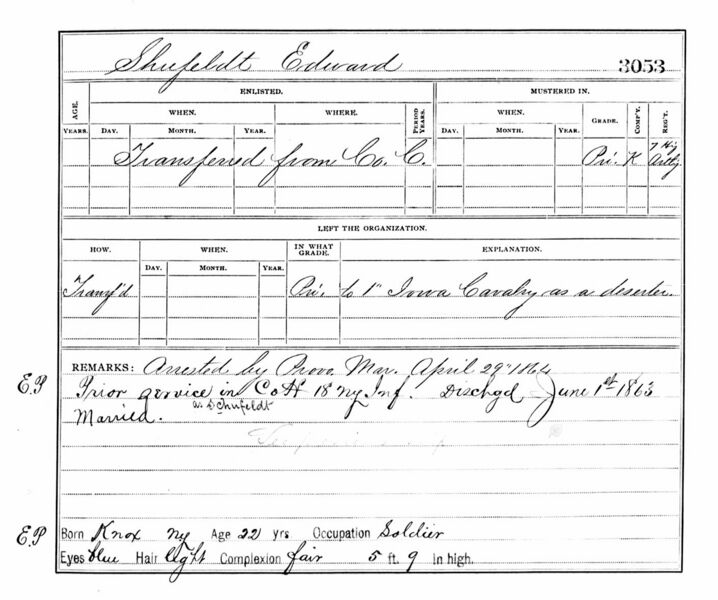 Shufeldt Edward 3053
ENLISTED. MUSTERED IN.
AGE. WHEN. WHERE. PERIOD WHEN. GRADE. COMP'Y. REG'T.
YEARS. DAY. MONTH. YEAR. YEARS. DAY. MONTH. YEAR.
7 Hy
Transferred from Co. C. Pri. K Artly.
LEFT THE ORGANIZATION.
HOW. WHEN. IN WHAT GRADE. EXPLANATION.
DAY. MONTH. YEAR.
Transf'd Pri. to 1" Iowa Cavalry as a deserter.
REMARKS: Arrested by Provo. Mar. April 29" 1864
E.P Prior service in Co H 18 Ny Inf. Dischgd June 1st 1863
as Schufeldt
Married.
E.P Born Knox Ny Age 22 yrs Occupation Soldier
Eyes blue Hair light Complexion fair 5 ft. 9 in high.